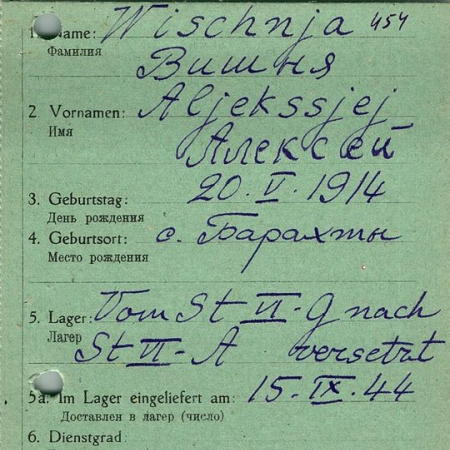 1. Name: Wischnja 454
Фамилия
Вишня
2 Vornamen: Aljekssjej
Имя
Алексей
3. Geburtstag: 20. V. 1914
День рождения
4. Geburtsort: с. Барахты
Место рождения
5. Lager: Vom St II-G nach
Лагер
St II-A versetzt
5a. Im Lager eingeliefert am: 15. IX. 44
Доставлен в лагер (число)
6. Dienstgrad: